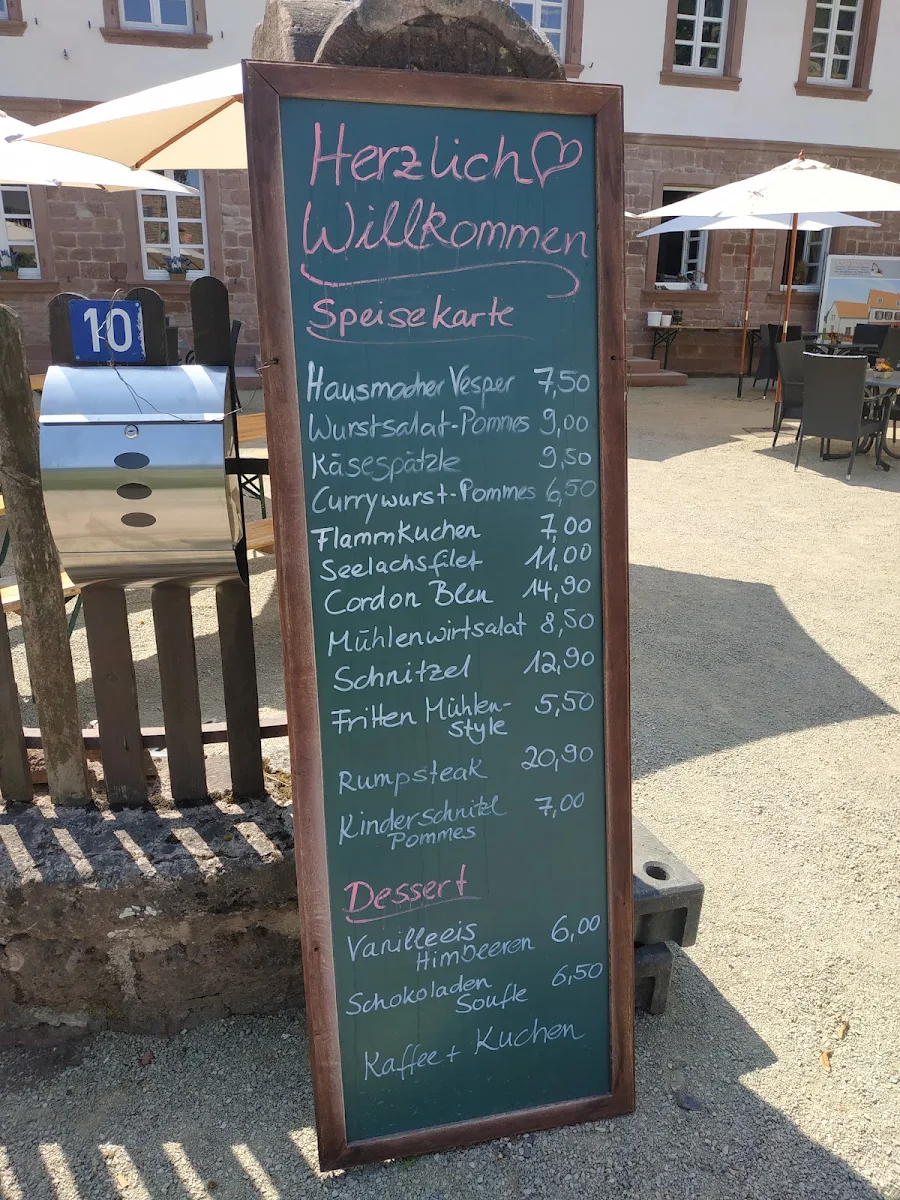 Herzlich
Willkommen
Speisekarte
Hausmacher Vesper 7,50
Wurstsalat-Pommes 9,00
Käsespätzle 9,50
Currywurst-Pommes 6,50
Flammkuchen 7,00
Seelachsfilet 11,00
Cordon Bleu 14,90
Mühlenwirtsalat 8,50
Schnitzel 12,90
Fritten Mühlen- 5,50
style
Rumpsteak 20,90
Kinderschnitzl 7,00
Pommes
Dessert
Vanilleeis 6,00
Himbeeren
Schokoladen 6,50
Soufle
Kaffee + Kuchen
10